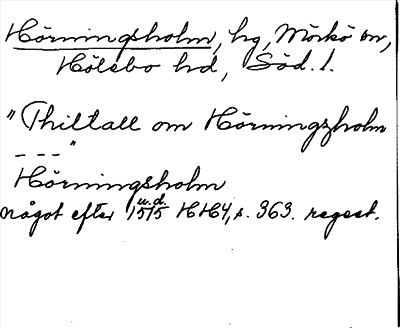 Hörningsholm, hg, Mörkö sn,
Hölebo hd, Söd. l.
"Thiltall om Hörningzholm
---"
Hörningsholm
något efter u.d. 1515 HH4, s. 363. regest.